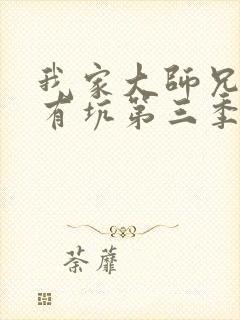 我家大師兄
有坑第三季
荼蘼